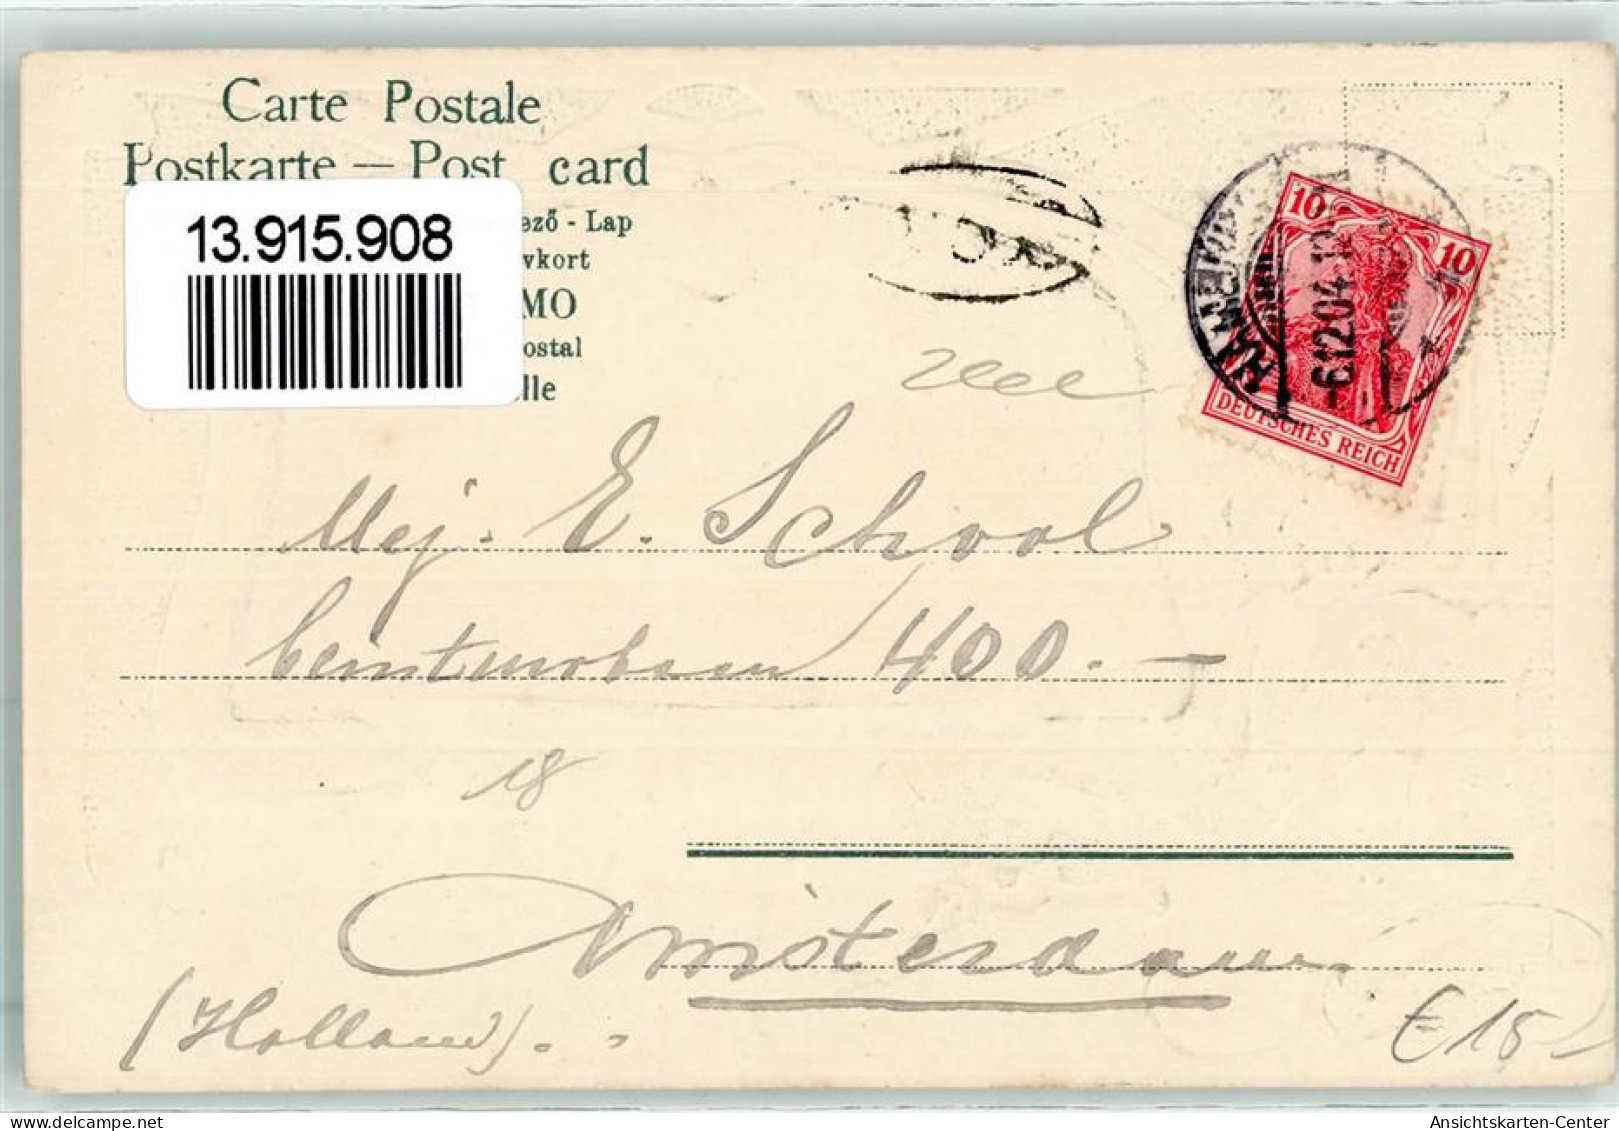 Carte Postale
Postkarte — Post card
13.915.908
ező - Lap
vkort
MO
ostal
lle
10
10
DEUTSCHES REICH
6.12.04.12
Mej. E. School
400. —
18
Amsterdam
(Holland).
€ 15-
Ansichtskarten-Center